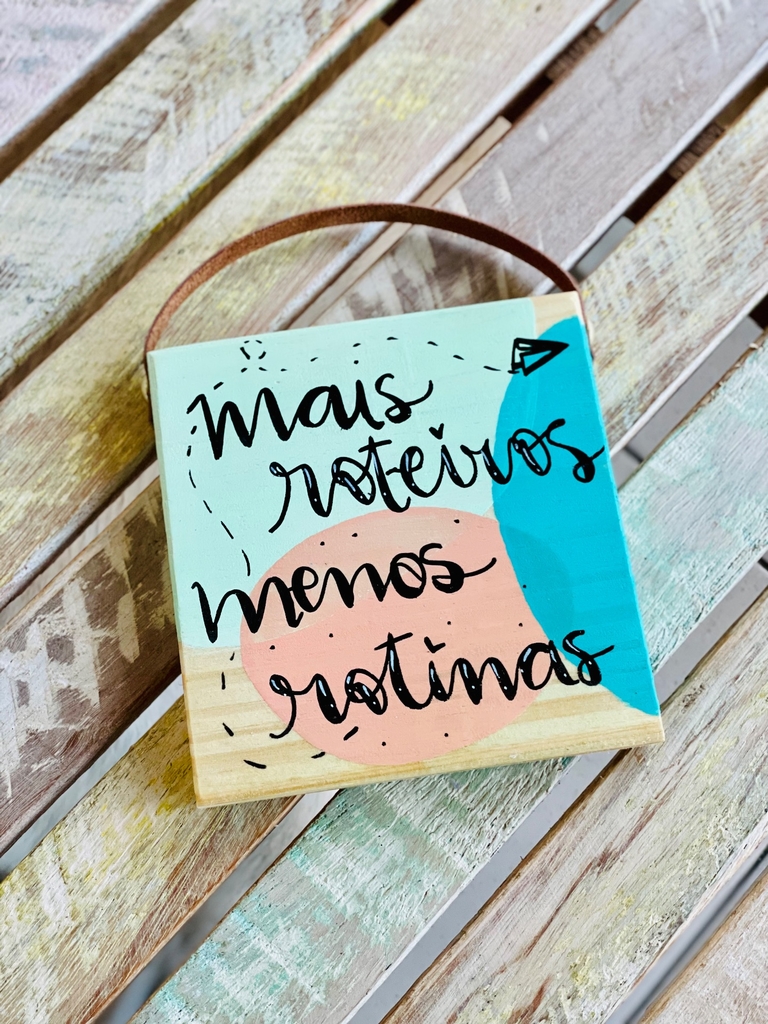 mais
roteiros
menos
rotinas